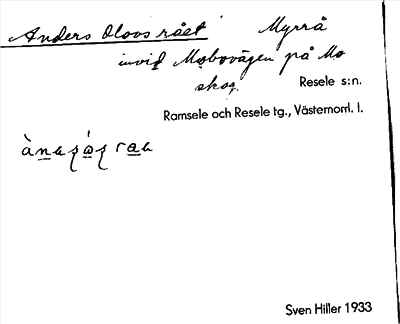 Anders Olovs rået Myrrå
invid Mobovägen på Mo
skog. Resele s:n.
Ramsele och Resele tg., Västernorrl. l.
Sven Hiller 1933